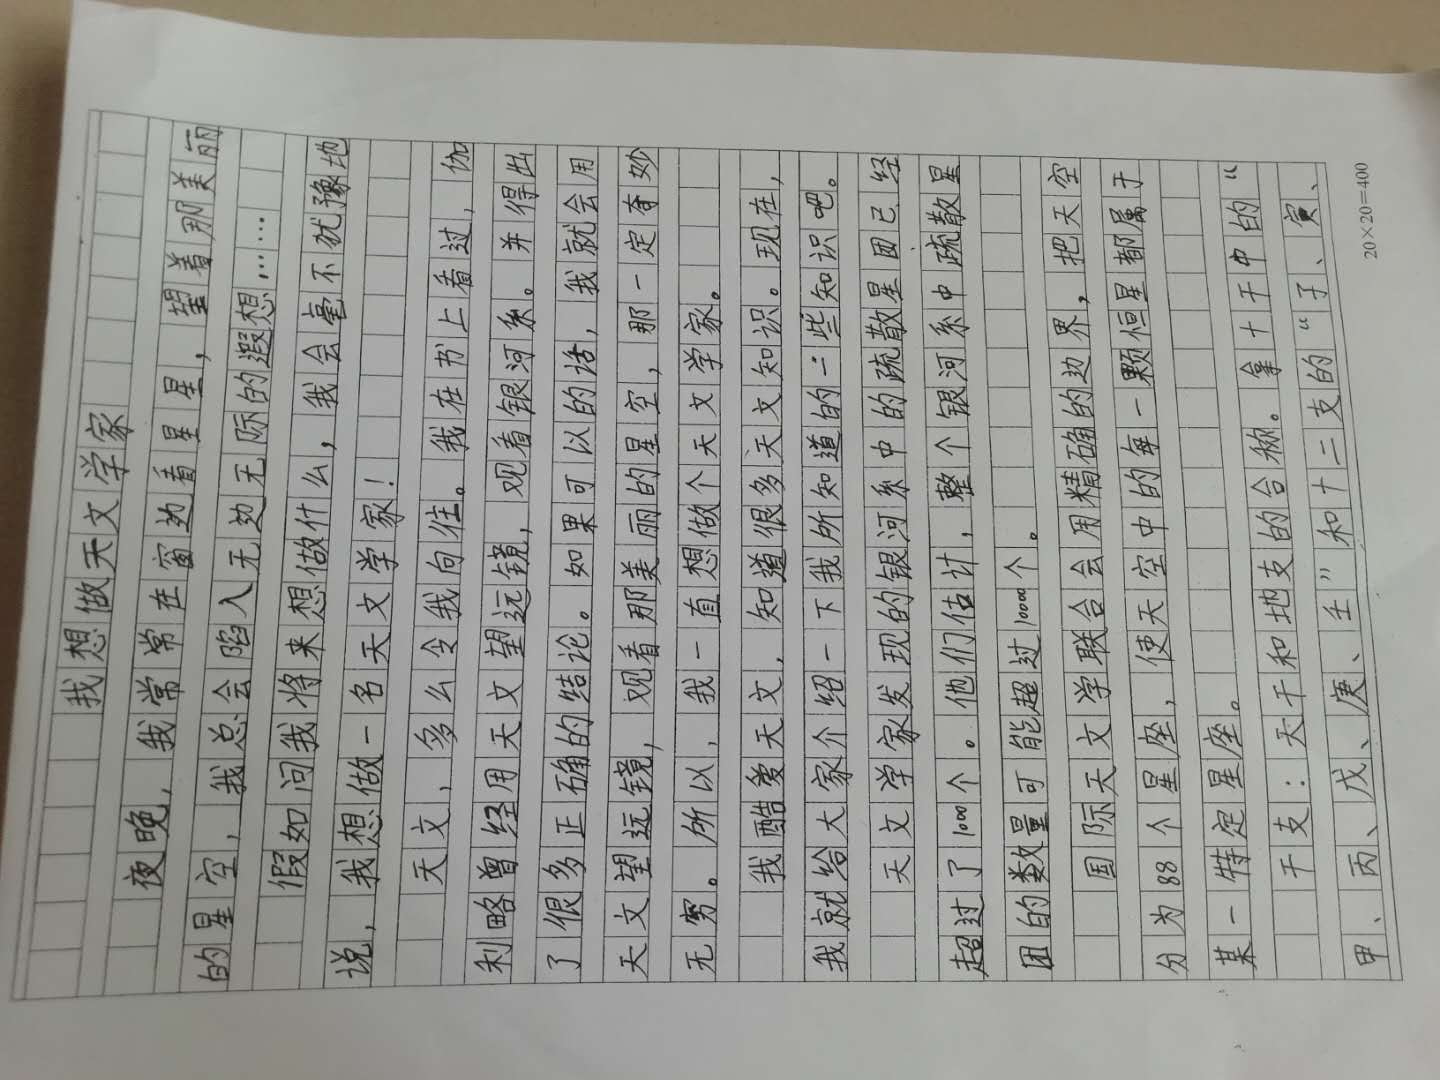 我想做天文学家
夜晚，我常常在窗边看星星，望着那美丽
的星空，我总会陷入无边无际的遐想……
假如问我将来想做什么，我会毫不犹豫地
说，我想做一名天文学家！
天文，多么令我向往。我在书上看过，伽
利略曾经用天文望远镜，观看银河系。并得出
了很多正确的结论。如果可以的话，我就会用
天文望远镜，观看那美丽的星空，那一定奇妙
无穷。所以，我一直想做个天文学家。
我酷爱天文，知道很多天文知识。现在，
我就给大家介绍一下我所知道的一些知识吧。
天文学家发现的银河系中的疏散星团已经
超过了1000个。他们估计，整个银河系中疏散星
团的数量可能超过10000个。
国际天文学联合会用精确的边界，把天空
分为88个星座，使天空中的每一颗恒星都属于
某一特定星座。
干支：天干和地支的合称。拿十干中的“
甲、丙、戊、庚、壬”和十二支的“子、寅、
20×20=400